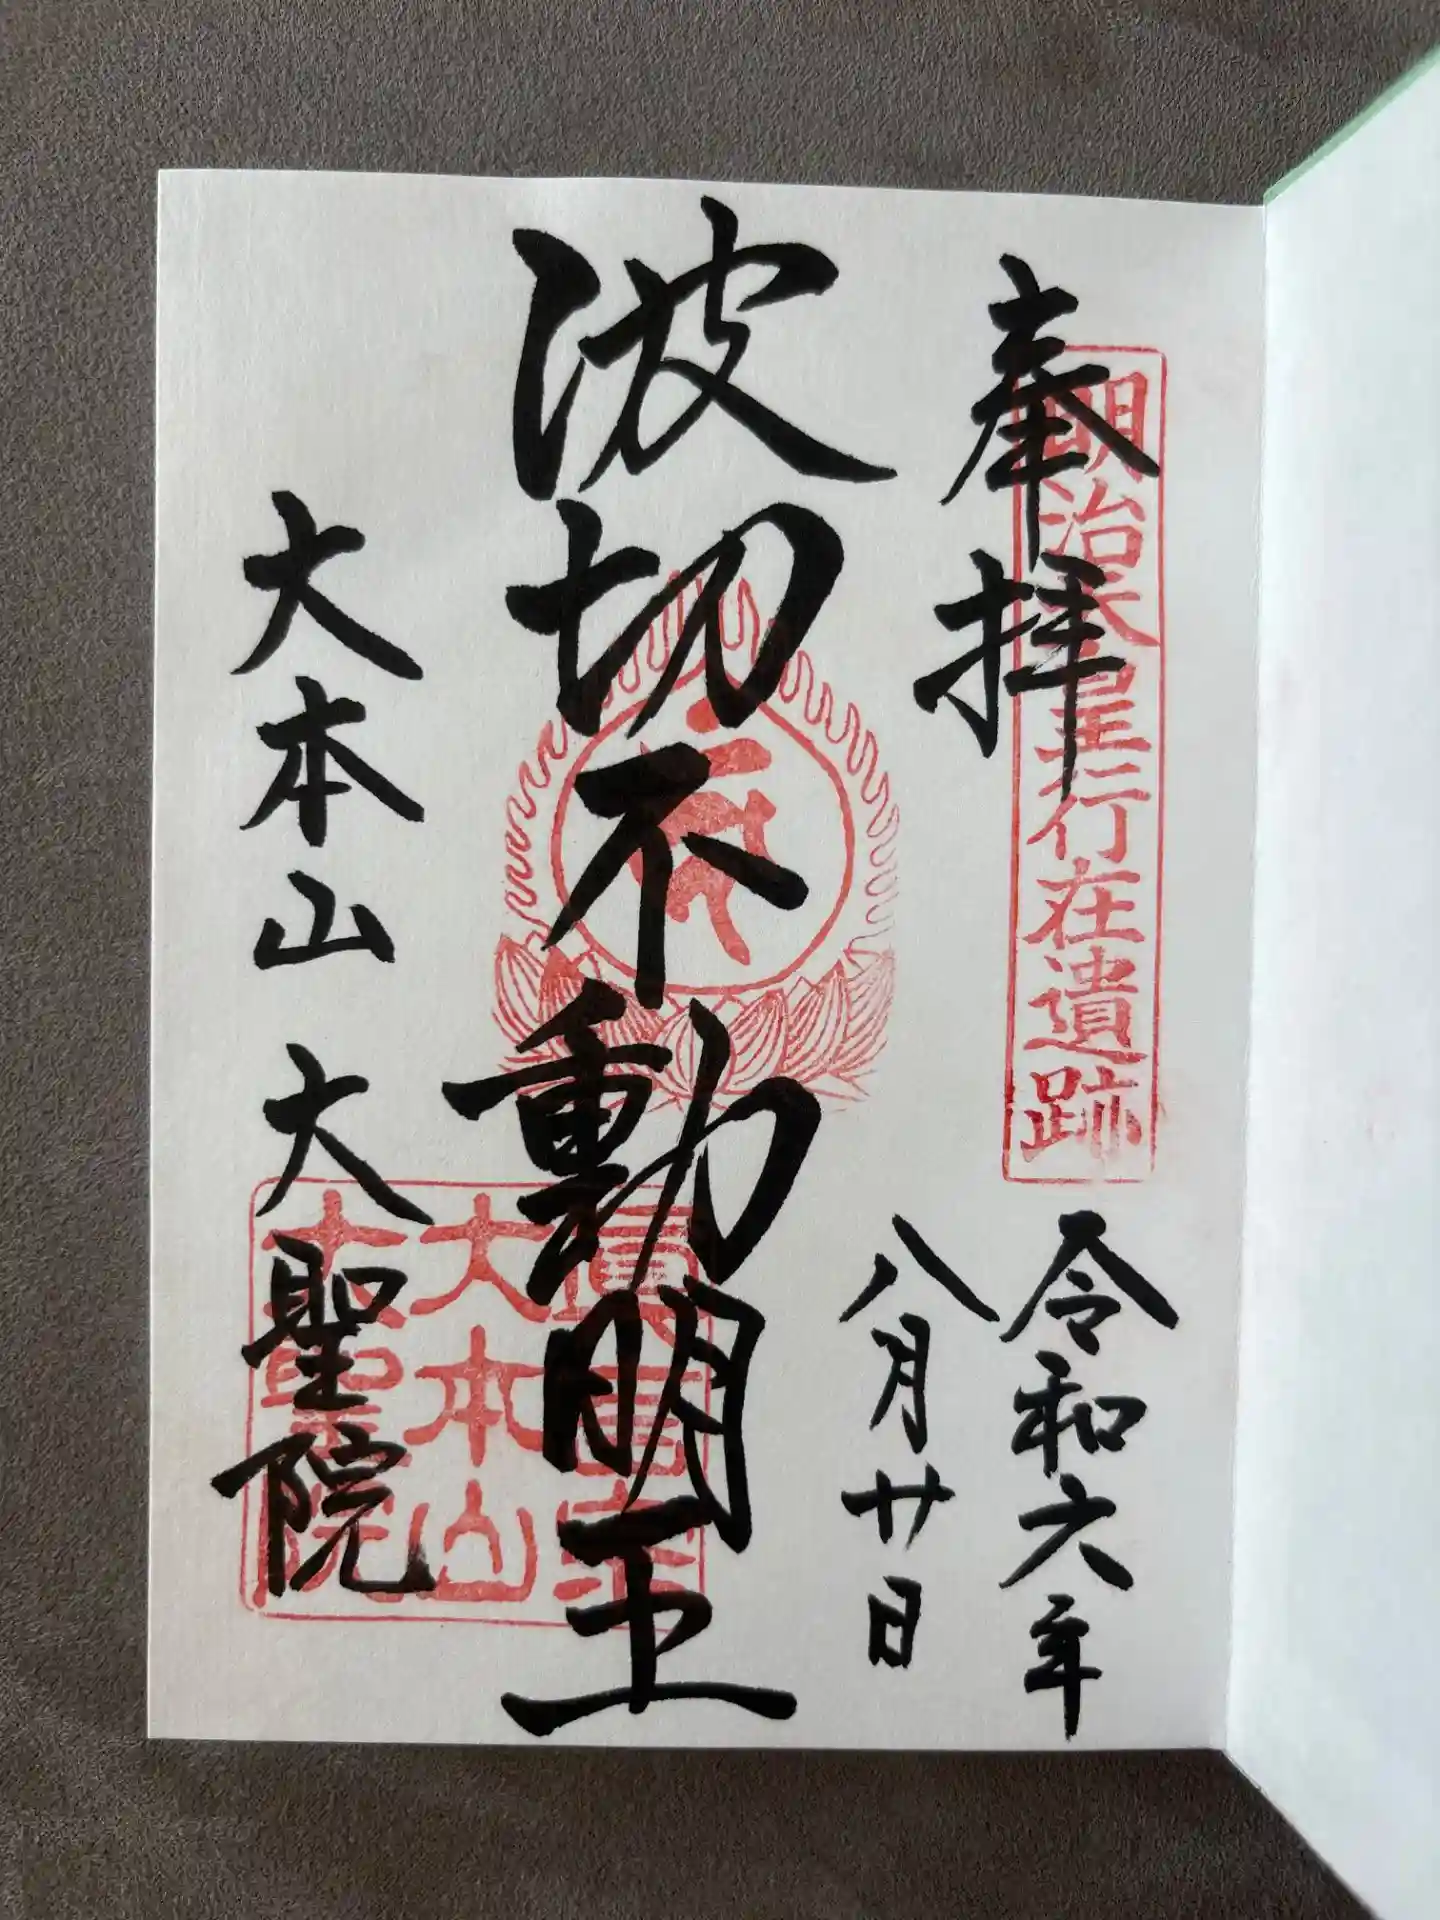 奉拝
明治天皇行在遺跡
令和六年
八月廿日
波切不動明王
大本山 大聖院
大本山
大聖院